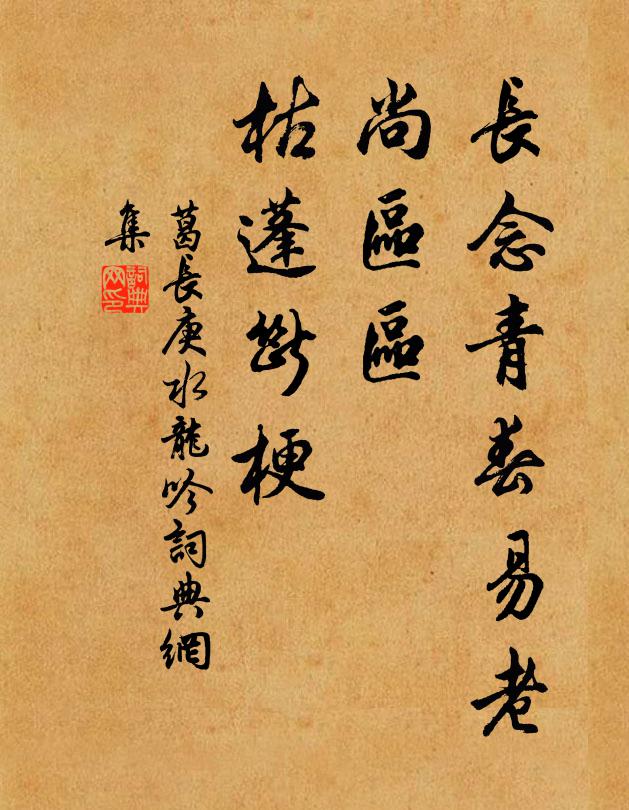 長念青春易老
尚區區
枯蓬斷梗
葛長庚水龍吟詞典網
集
詞典
网印